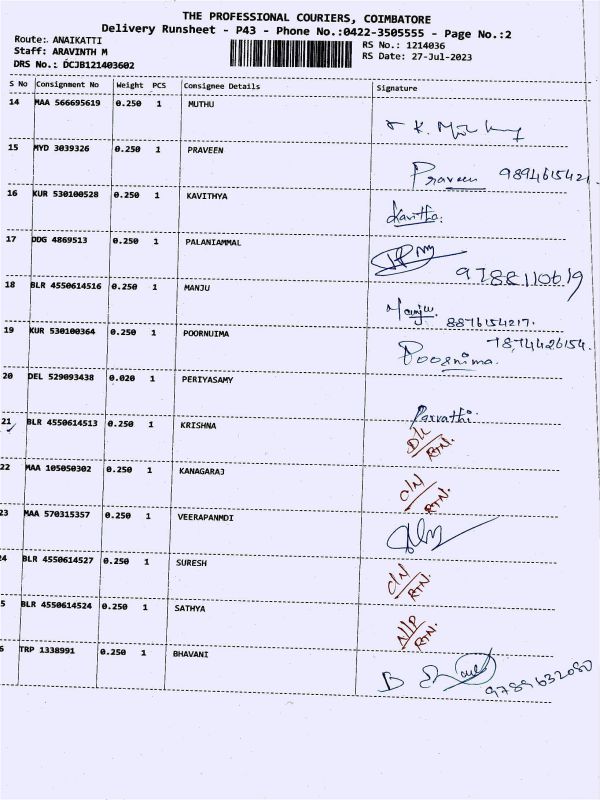 THE PROFESSIONAL COURIERS, COIMBATORE
Delivery Runsheet - P43 - Phone No.:0422-3505555 - Page No.:2
Route: ANAIKATTI
RS No.: 1214036
Staff: ARAVINTH M
RS Date: 27-Jul-2023
DRS No.: DCJB121403602
S No Consignment No Weight PCS Consignee Details Signature
14 MAA 566695619 0.250 1 MUTHU
15 MYD 3039326 0.250 1 PRAVEEN Praveen 9894615421
16 KUR 530100528 0.250 1 KAVITHYA Kavitha
17 DDG 4869513 0.250 1 PALANIAMMAL 9788110619
18 BLR 4550614516 0.250 1 MANJU Manju 8876154217.
19 KUR 530100364 0.250 1 POORNUIMA Poornima. 7874426154.
20 DEL 529093438 0.020 1 PERIYASAMY Parvathi
21 BLR 4550614513 0.250 1 KRISHNA D/L RTN.
22 MAA 105050302 0.250 1 KANAGARAJ C/N RTN.
23 MAA 570315357 0.250 1 VEERAPANMDI
24 BLR 4550614527 0.250 1 SURESH C/N RTN.
5 BLR 4550614524 0.250 1 SATHYA N/P RTN.
6 TRP 1338991 0.250 1 BHAVANI B 9789632080